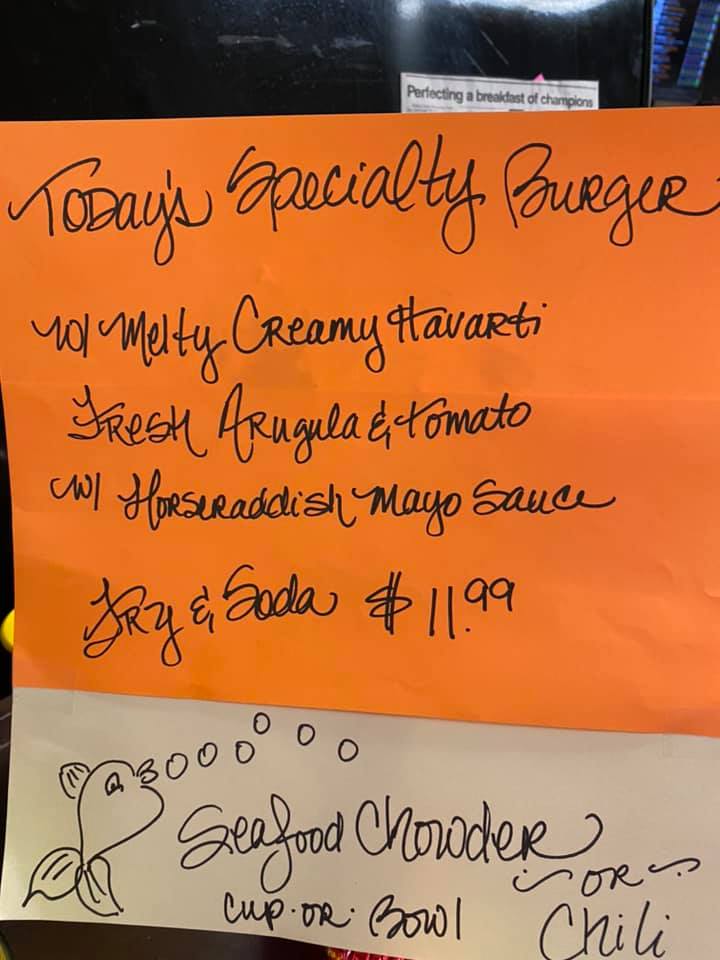 Perfecting a breakfast of champions
Today's Specialty Burger
w/ Melty Creamy Havarti
Fresh Arugula & Tomato
w/ Horseraddish Mayo Sauce
Fry & Soda $11.99
Seafood Chowder
~ OR ~
Cup. or. Bowl
Chili